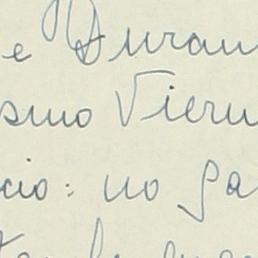 e Duran
smo Viern
cio: no ga